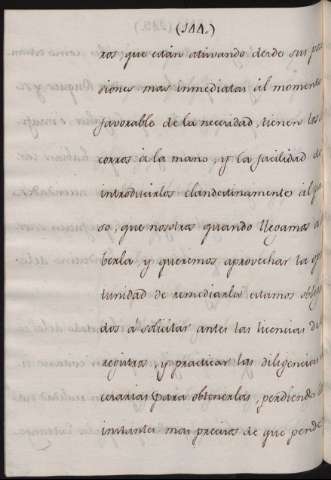 (144.)
ros, que están ativando desde sus pos
siones mas inmediatas àl moment
favorable de la necesidad, tienen los
corros à la mano, y la facilidad de
introducirlos clandestinamente àl pa
so, que nosotros quando llegamos a
berla, y queremos aprovechar la op
tunidad de remediarla estamos oblig
dos à solicitar antes las licencias de
registros, y practicar las diligencias
cesarias para obtenerlas, perdiendo
instantes mas precisos de que pende